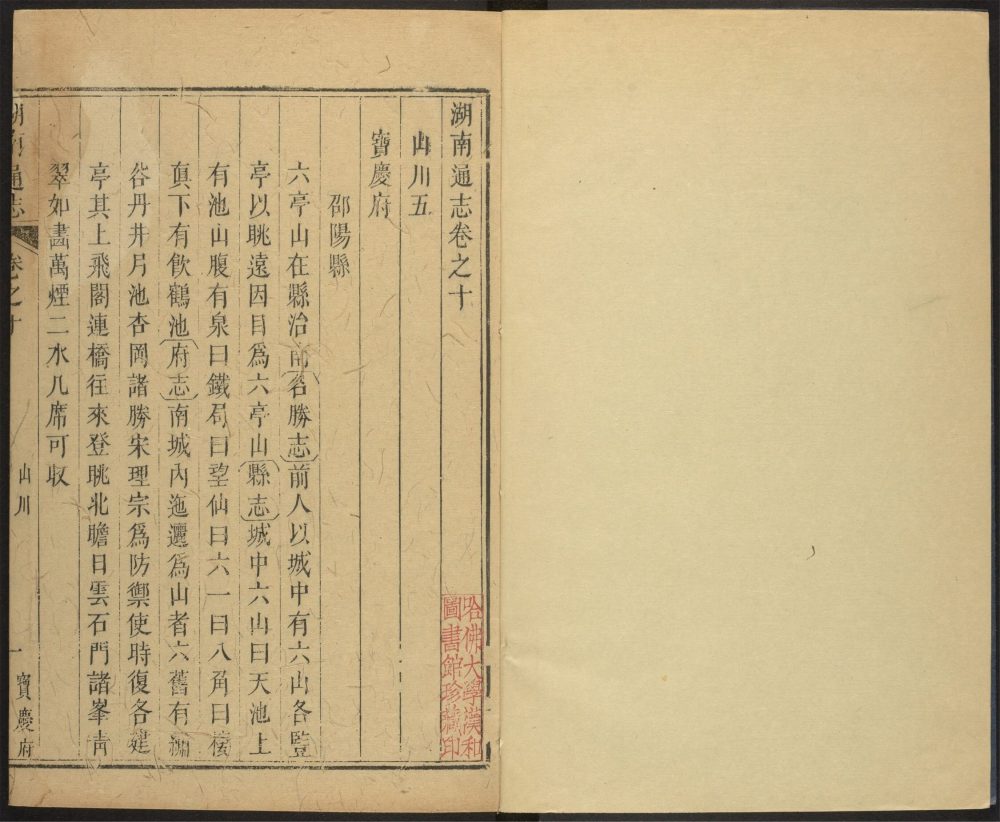 湖南通志卷之十
山川五
寶慶府
邵陽縣
六亭山在縣治南名勝志前人以城中有六山各豎
亭以眺遠因目爲六亭山縣志城中六山曰天池上
有池山腹有泉曰鐵局曰望仙曰六一曰八角曰棲
眞下有飮鶴池府志南城內迤邐爲山者六舊有
谷丹井月池杏岡諸勝宋理宗爲防禦使時復各建
亭其上飛閣連橋往來登眺北瞻日雲石門諸峯靑
翠如畵萬煙二水几席可収
湖南通志
卷之十
山川
一
寶慶府
哈佛大學漢和
圖書館珍藏印